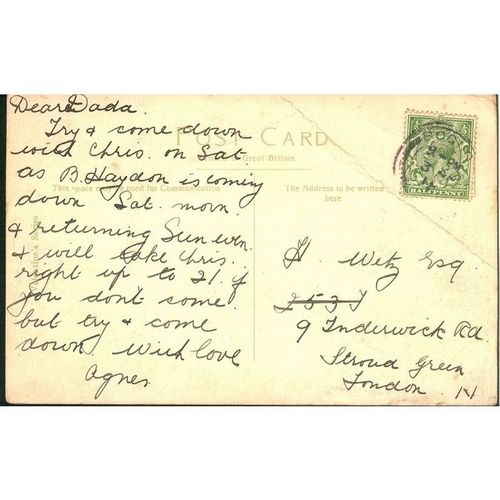 Dear Dada.
Try & come down
with Chris. on Sat.
as B. Haydon is coming
down Sat. morn.
& returning Sun evn.
& will take Chris.
right up to 21. if
you don't come.
but try & come
down. With love
Agnes.
POST CARD
Great Britain
This space may be used for Communication
The Address to be written
here
H. Wetz Esq
253
9 Inderwick Rd.
Stroud Green
London. N
HALFPENNY